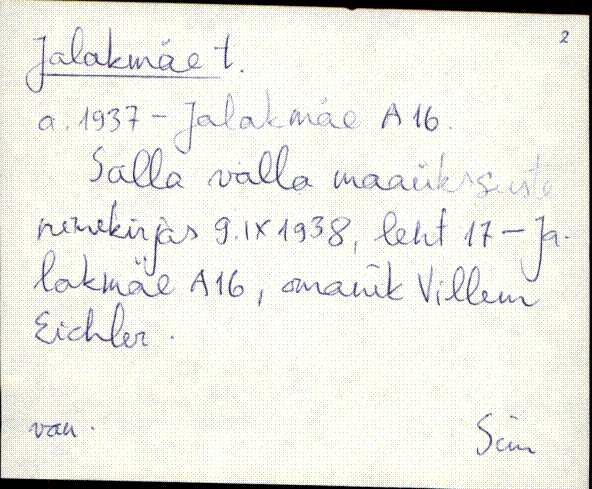 2
Jalakmäe t.
a. 1937 - Jalakmäe A 16.
Salla valla maaüksuste
nimekirjas 9.IX 1938, leht 17 - Ja-
lakmäe A16, omanik Villem
Eichler.
van.
Sim